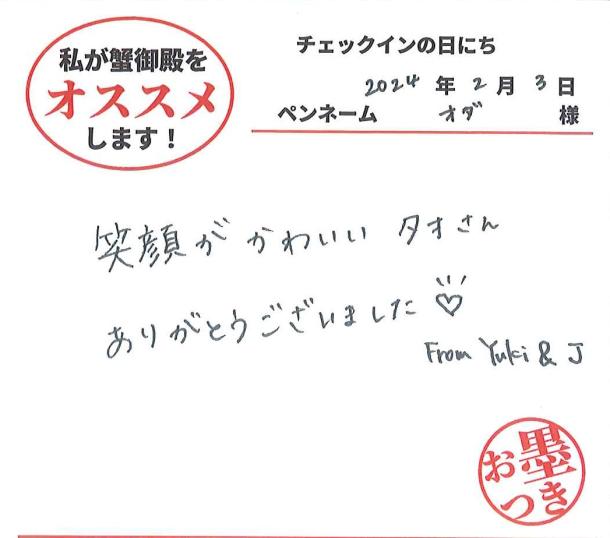 私が蟹御殿を
オススメ
します！
チェックインの日にち
2024 年 2 月 3 日
ペンネーム オダ 様
笑顔が かわいい タオさん
ありがとうございました♡
From Yuki & J
お墨
つき